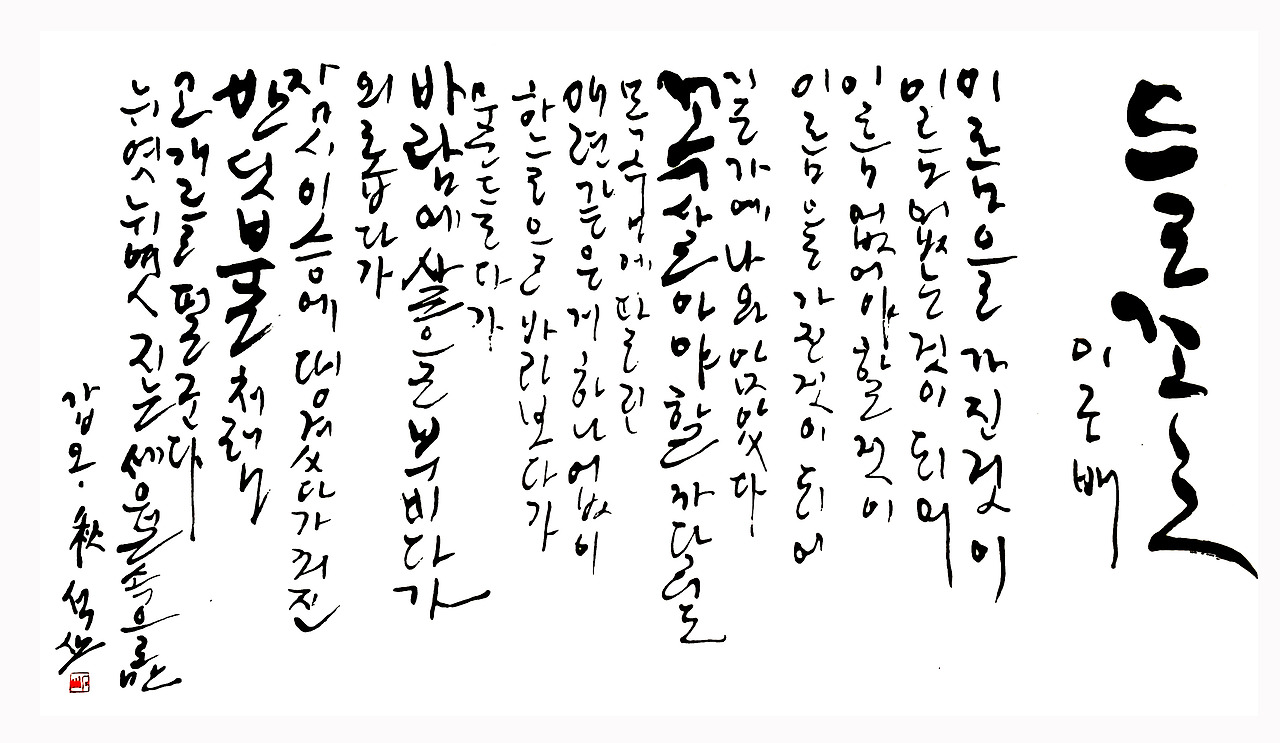 들꽃
이근배
이름을 가진 것이
이름 없는 것이 되어
이름 없어야 할 것이
이름을 가진 것이 되어
길가에 나와 앉았다
꼭 살아야 할 까닭도
목숨에 딸린
애련 같은 게 하나 없이
하늘을 바라보다가
물들다가
바람에 살을 부비다가
외롭다가
잠시 이승에 댕겼다가 꺼진
반딧불처럼
고개를 떨군다
뉘엿뉘엿 지는 세월 속으로만
갑오. 秋 석산